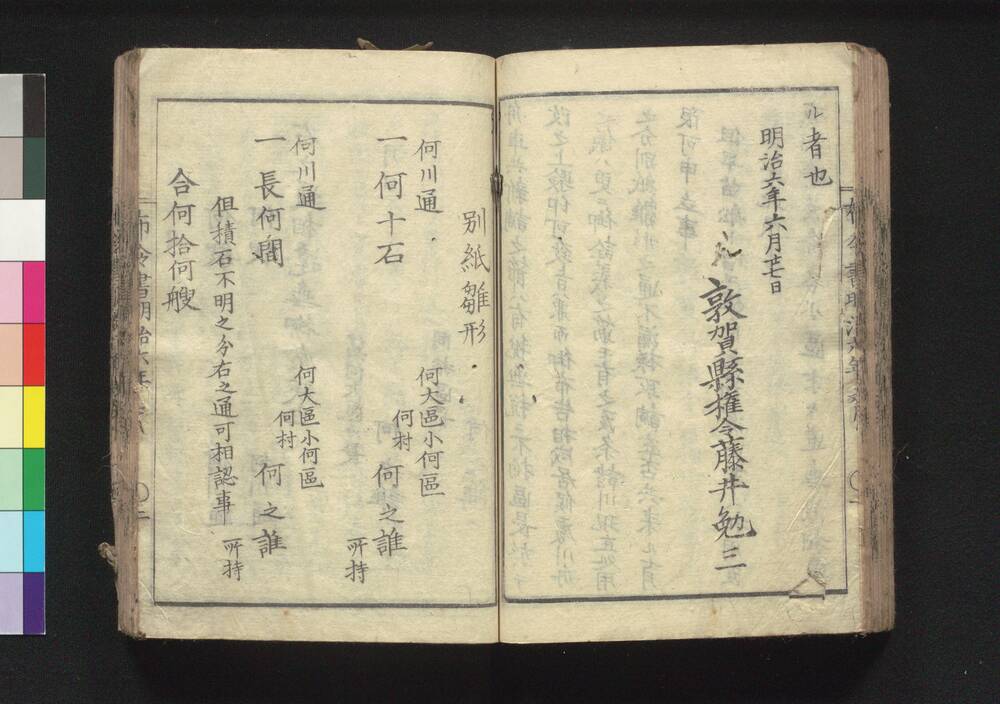 ル者也
明治六年六月廿七日
敦賀縣権令藤井勉三
別紙雛形
何川通
一何十石
何大區小何區
何村
何之誰
所持
何川通
一長何間
何大區小何區
何村
何之誰
所持
但積石不明之分右之通可相認事
合何拾何艘
布令書明治六年